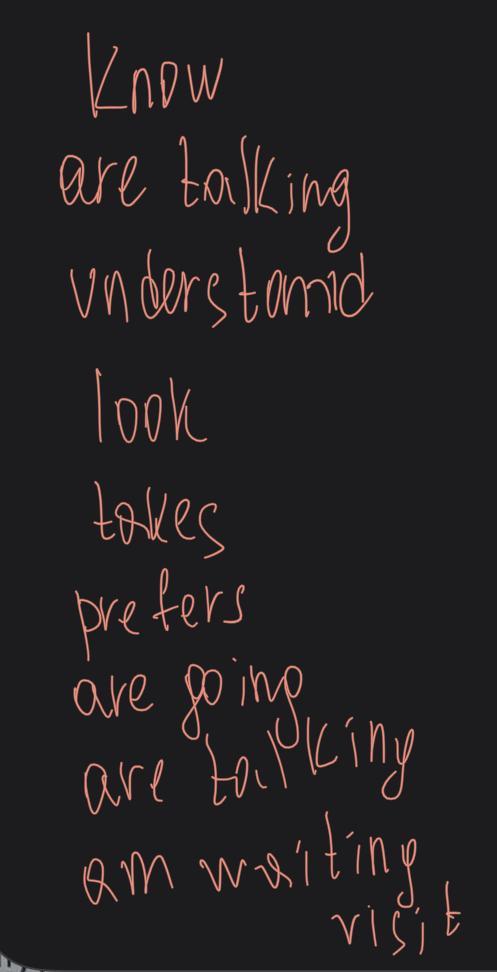 Know
are talking
understand
look
takes
prefers
are going
are talking
am waiting
visit